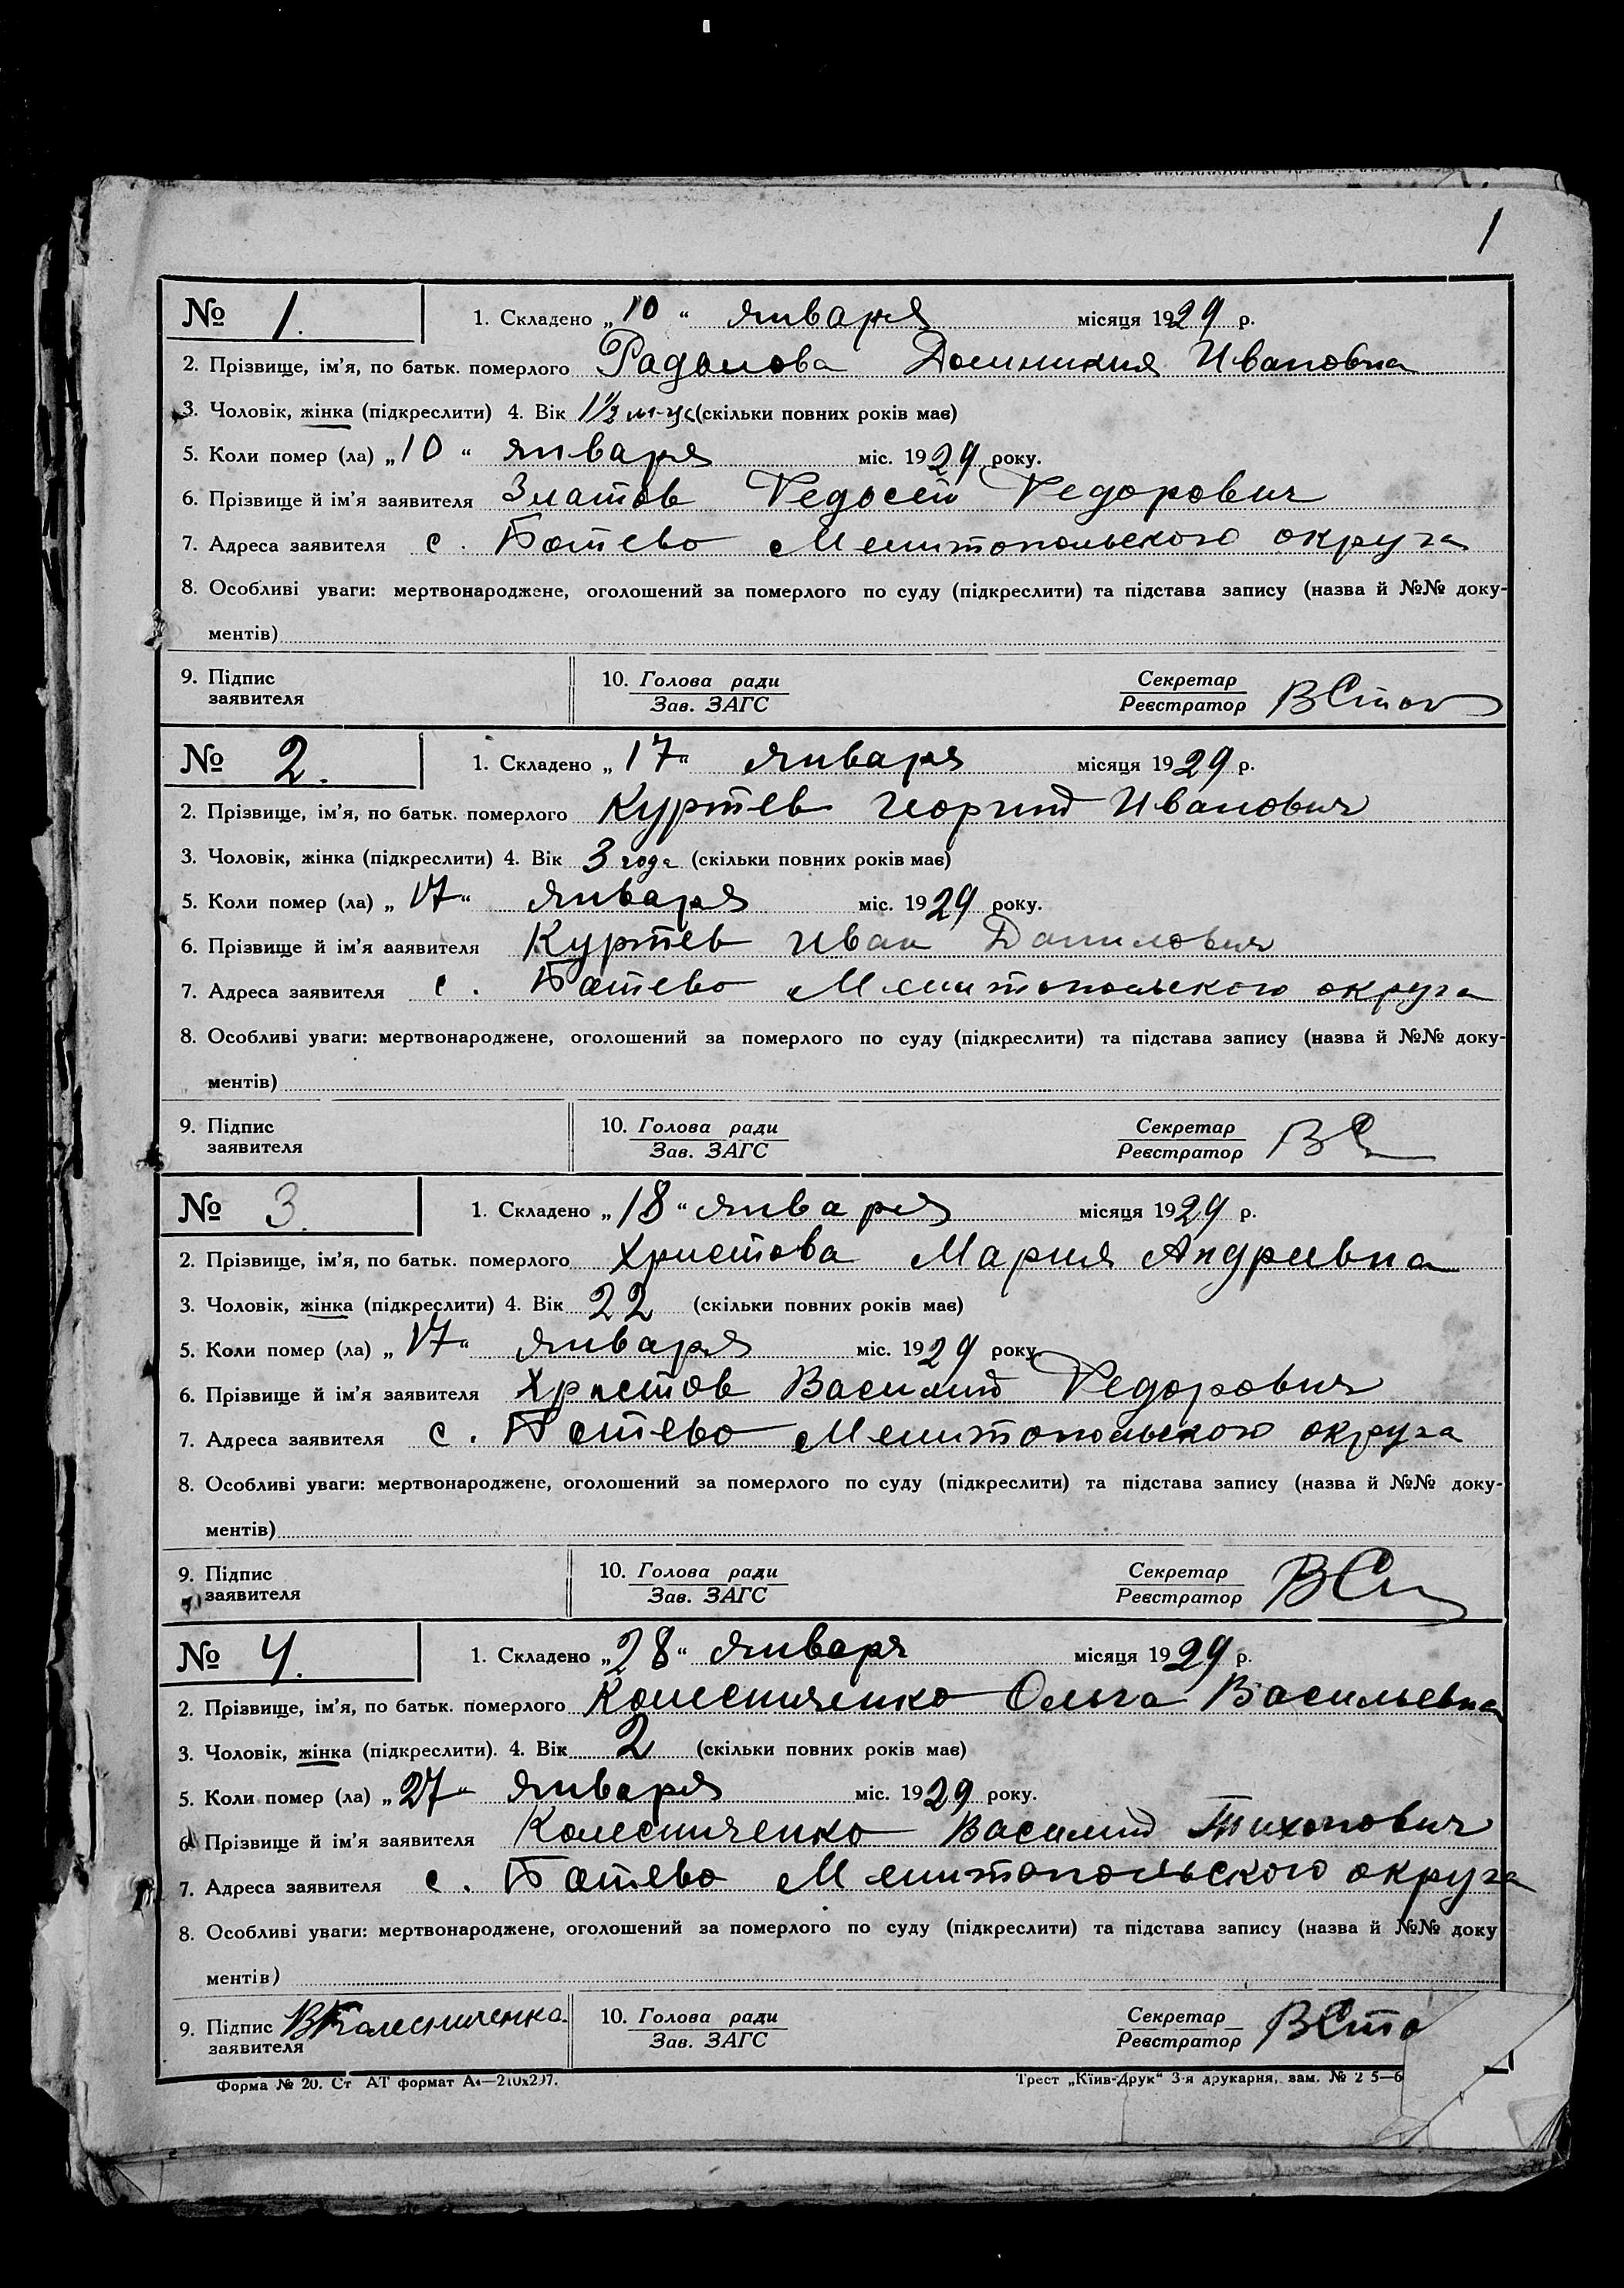 1
№ 1. 1. Складено „10“ января місяця 1929 р.
2. Прізвище, ім’я, по батьк. померлого Радолова Домникия Ивановна
3. Чоловік, жінка (підкреслити) 4. Вік 1½ м-ца (скільки повних років має)
5. Коли помер (ла) „10“ января міс. 1929 року.
6. Прізвище й ім’я заявителя Златов Федосей Федорович
7. Адреса заявителя с. Ботево Мелитопольского округа
8. Особливі уваги: мертвонароджене, оголошений за померлого по суду (підкреслити) та підстава запису (назва й №№ доку-
ментів)
9. Підпис заявителя 10. Голова ради Зав. ЗАГС Секретар Реєстратор
№ 2. 1. Складено „17“ января місяця 1929 р.
2. Прізвище, ім’я, по батьк. померлого Куртев Георгий Иванович
3. Чоловік, жінка (підкреслити) 4. Вік 3 года (скільки повних років має)
5. Коли помер (ла) „17“ января міс. 1929 року.
6. Прізвище й ім’я ааявителя Куртев Иван Данилович
7. Адреса заявителя с. Ботево Мелитопольского округа
8. Особливі уваги: мертвонароджене, оголошений за померлого по суду (підкреслити) та підстава запису (назва й №№ доку-
ментів)
9. Підпис заявителя 10. Голова ради Зав. ЗАГС Секретар Реєстратор
№ 3. 1. Складено „18“ января місяця 1929 р.
2. Прізвище, ім’я, по батьк. померлого Христова Мария Андреевна
3. Чоловік, жінка (підкреслити) 4. Вік 22 (скільки повних років має)
5. Коли помер (ла) „17“ января міс. 1929 року
6. Прізвище й ім’я заявителя Христов Василий Федорович
7. Адреса заявителя с. Ботево Мелитопольского округа
8. Особливі уваги: мертвонароджене, оголошений за померлого по суду (підкреслити) та підстава запису (назва й №№ доку-
ментів)
9. Підпис заявителя 10. Голова ради Зав. ЗАГС Секретар Реєстратор
№ 4. 1. Складено „28“ января місяця 1929 р.
2. Прізвище, ім’я, по батьк. померлого Колесниченко Ольга Васильевна
3. Чоловік, жінка (підкреслити). 4. Вік 2 (скільки повних років має)
5. Коли помер (ла) „27“ января міс. 1929 року.
6. Прізвище й ім’я заявителя Колесниченко Василий Тихонович
7. Адреса заявителя с. Ботево Мелитопольского округа
8. Особливі уваги: мертвонароджене, оголошений за померлого по суду (підкреслити) та підстава запису (назва й №№ доку
ментів)
9. Підпис заявителя ВКолесниченко 10. Голова ради Зав. ЗАГС Секретар Реєстратор
Форма № 20. Ст АТ формат А4—210х297. Трест „Київ-Друк“ 3-я друкарня, зам. № 2 5—6